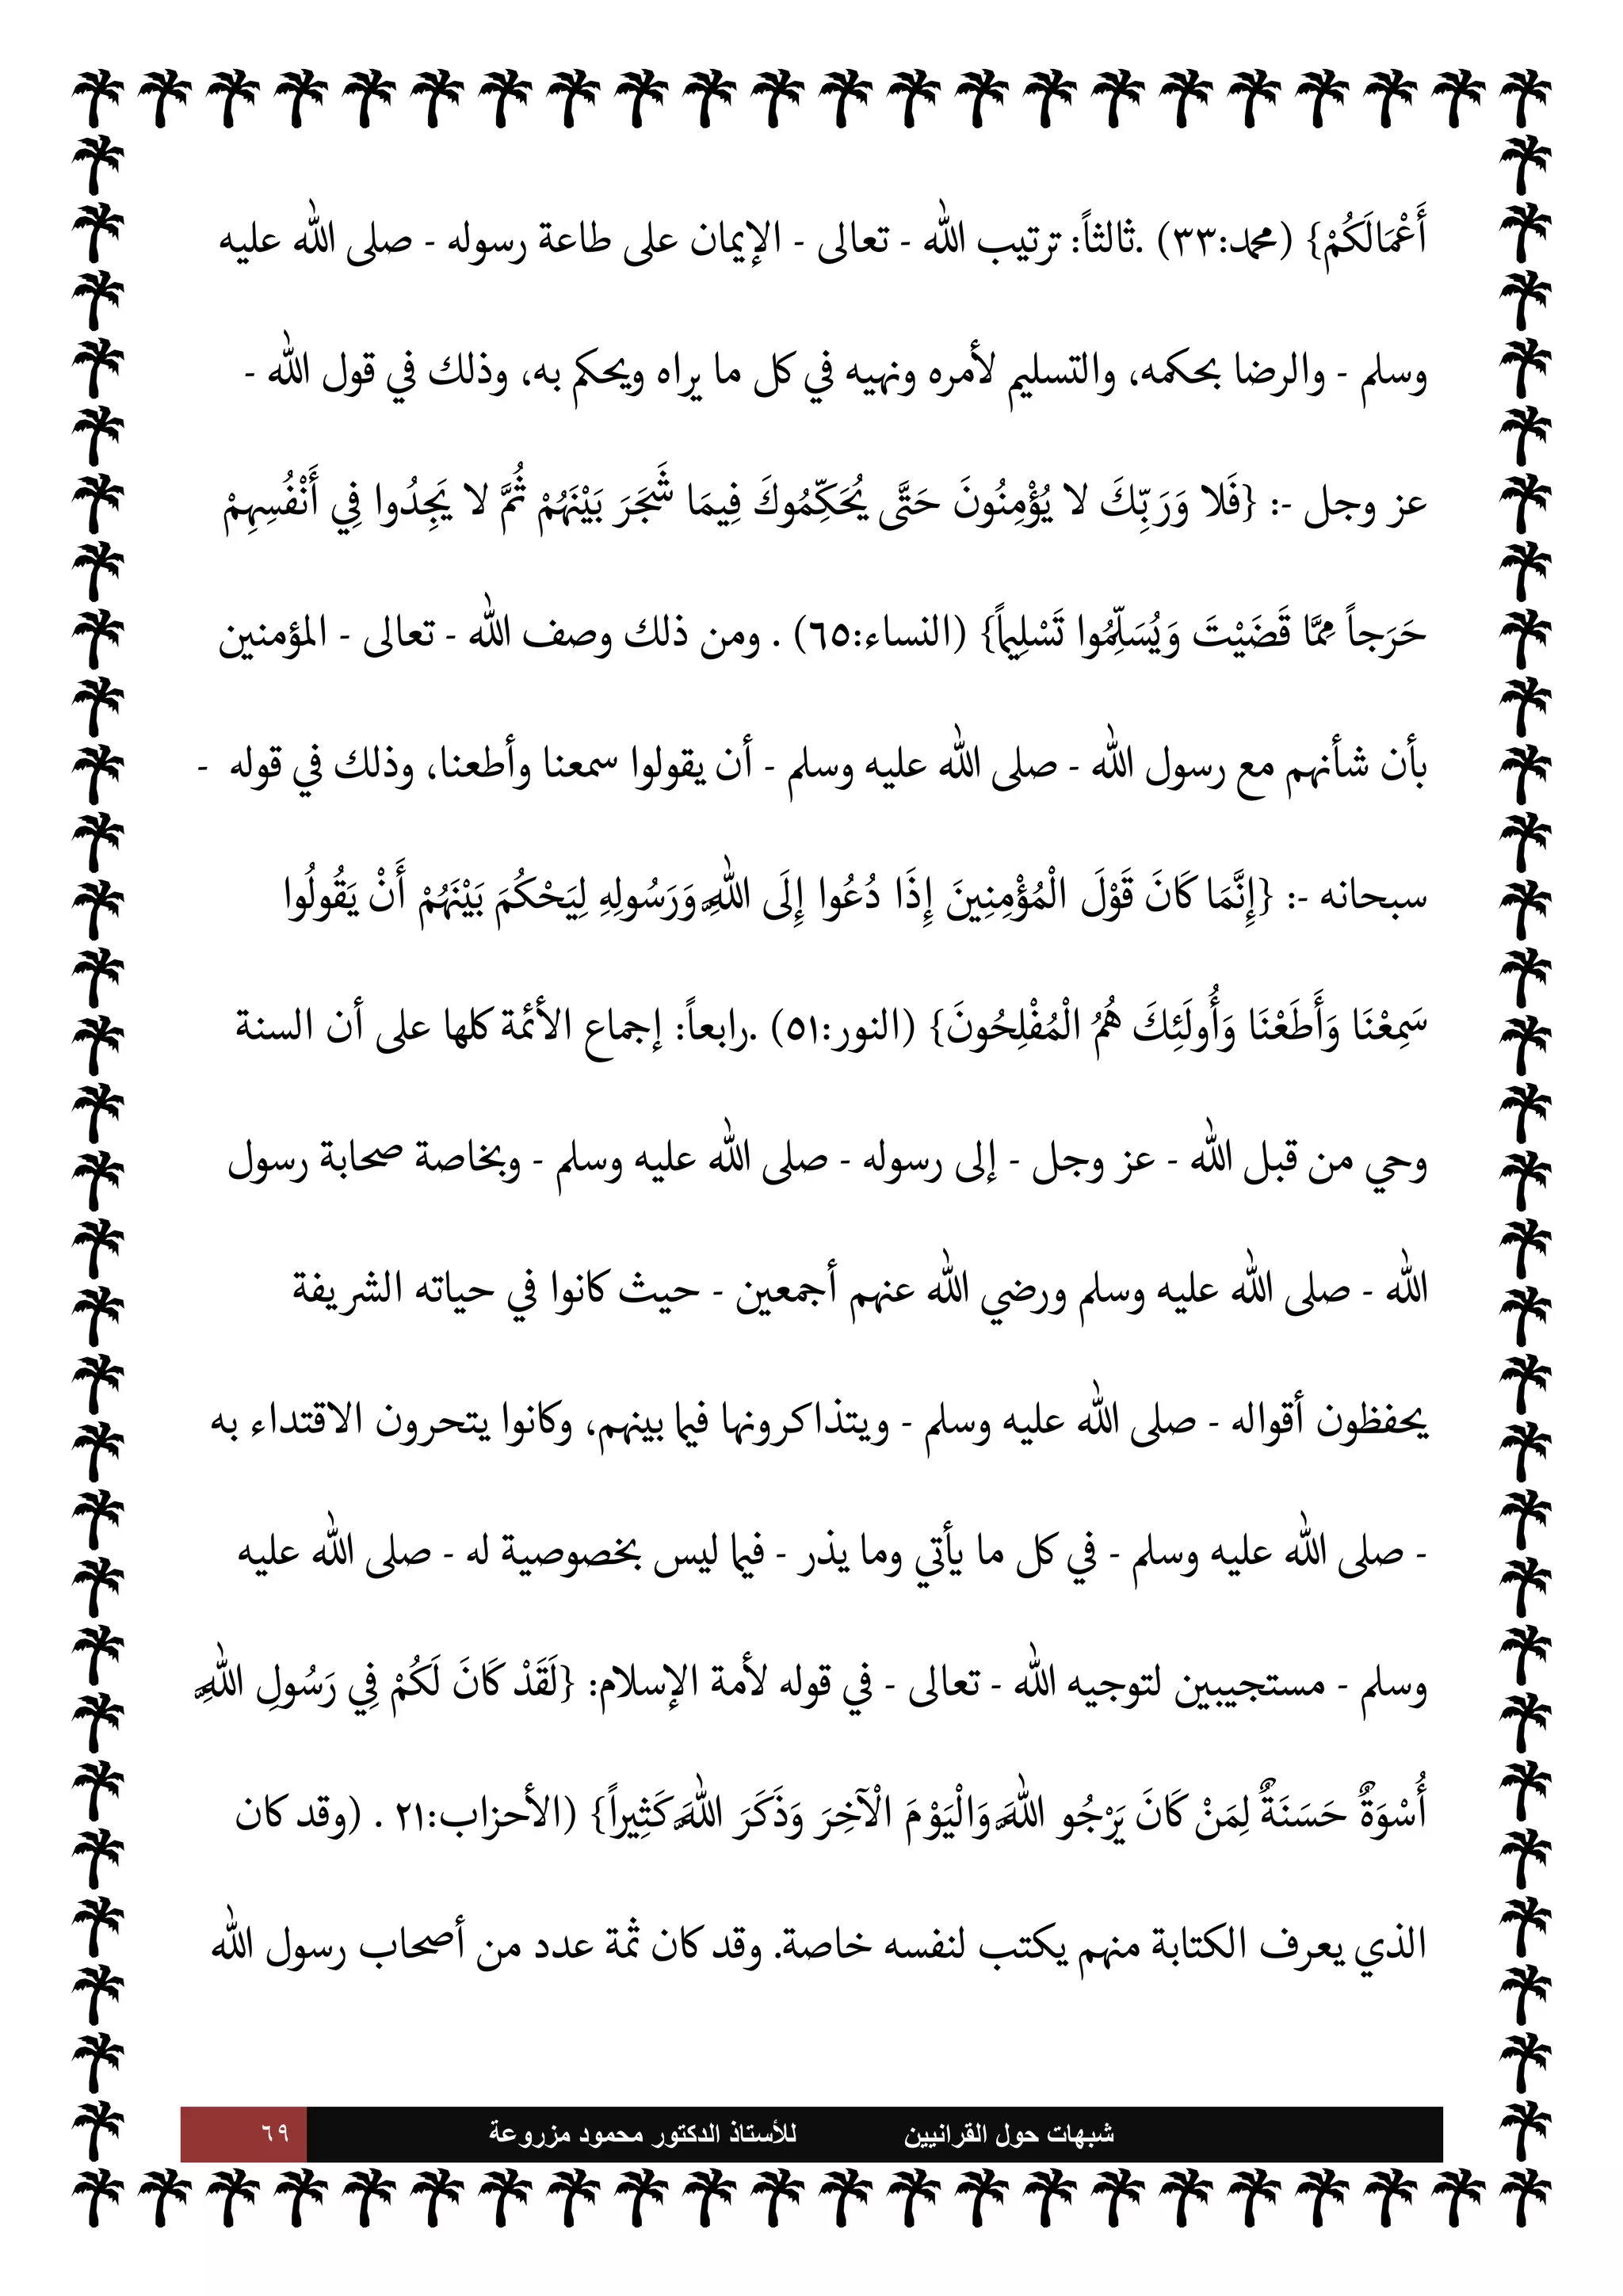 أَعْمَالَكُمْ} (محمد:٣٣) .ثالثاً: ترتيب الله - تعالى - الإيمان على طاعة رسوله - صلى الله عليه
وسلم - والرضا بحكمه، والتسليم لأمره ونهيه في كل ما يراه ويحكم به، وذلك في قول الله -
عز وجل -: {فَلا وَرَبِّكَ لا يُؤْمِنُونَ حَتَّى يُحَكِّمُوكَ فِيمَا شَجَرَ بَيْنَهُمْ ثُمَّ لا يَجِدُوا فِي أَنْفُسِهِمْ
حَرَجاً مِمَّا قَضَيْتَ وَيُسَلِّمُوا تَسْلِيماً} (النساء:٦٥) . ومن ذلك وصف الله - تعالى - المؤمنين
بأن شأنهم مع رسول الله - صلى الله عليه وسلم - أن يقولوا سمعنا وأطعنا، وذلك في قوله -
سبحانه -: {إِنَّمَا كَانَ قَوْلَ الْمُؤْمِنِينَ إِذَا دُعُوا إِلَى اللَّهِ وَرَسُولِهِ لِيَحْكُمَ بَيْنَهُمْ أَنْ يَقُولُوا
سَمِعْنَا وَأَطَعْنَا وَأُولَئِكَ هُمُ الْمُفْلِحُونَ} (النور:٥١) .رابعاً: إجماع الأئمة كلها على أن السنة
وحي من قبل الله - عز وجل - إلى رسوله - صلى الله عليه وسلم - وبخاصة صحابة رسول
الله - صلى الله عليه وسلم ورضي الله عنهم أجمعين - حيث كانوا في حياته الشريفة
يحفظون أقواله - صلى الله عليه وسلم - ويتذاكرونها فيما بينهم، وكانوا يتحرون الاقتداء به
- صلى الله عليه وسلم - في كل ما يأتي وما يذر - فيما ليس بخصوصية له - صلى الله عليه
وسلم - مستجيبين لتوجيه الله - تعالى - في قوله لأمة الإسلام: {لَقَدْ كَانَ لَكُمْ فِي رَسُولِ اللَّهِ
أُسْوَةٌ حَسَنَةٌ لِمَنْ كَانَ يَرْجُو اللَّهَ وَالْيَوْمَ الْآخِرَ وَذَكَرَ اللَّهَ كَثِيراً} (الأحزاب:٢١ . (وقد كان
الذي يعرف الكتابة منهم يكتب لنفسه خاصة. وقد كان ثمة عدد من أصحاب رسول الله
شبهات حول القرانيين للأستاذ الدكتور محمود مزروعة ٦٩